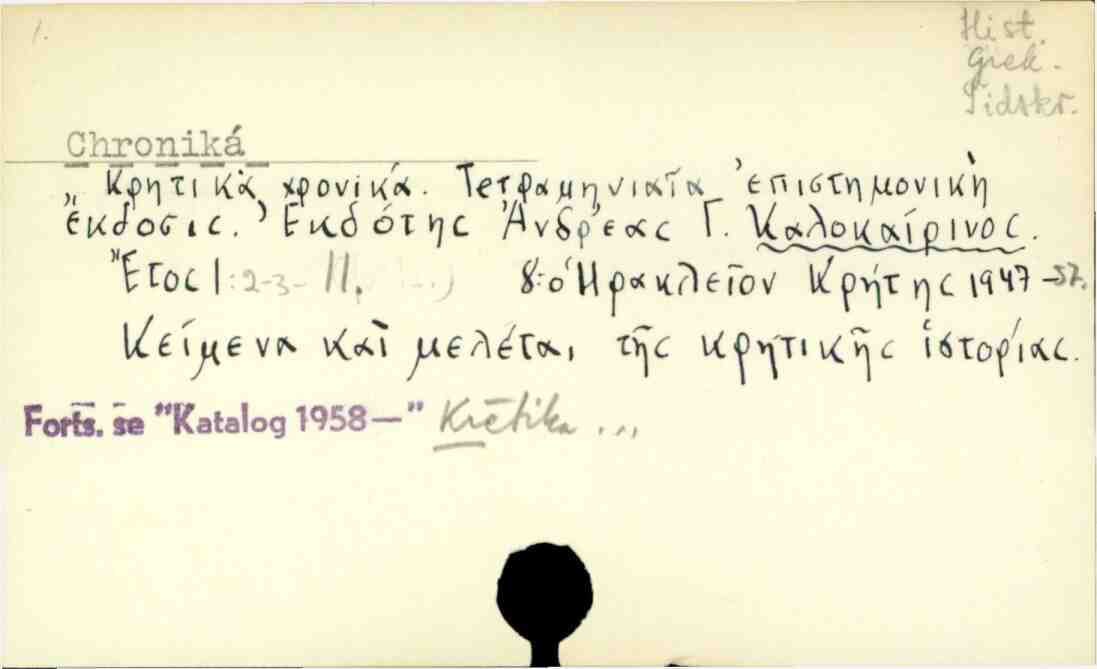 1.
Hist.
Grek.
Tidskr.
Chroniká
„ Κρητικὰ χρονικά. Τετραμηνιαία ἐπιστημονικὴ
ἔκδοσις. Ἐκδότης Ἀνδρέας Γ. Καλοκαίρινος.
Ἔτος I:2-3- 11. 8:ο Ἡρακλεῖον Κρήτης 1947-57.
Κείμενα καὶ μελέται τῆς κρητικῆς ἱστορίας.
Forts. se "Katalog 1958—" Krētika ...